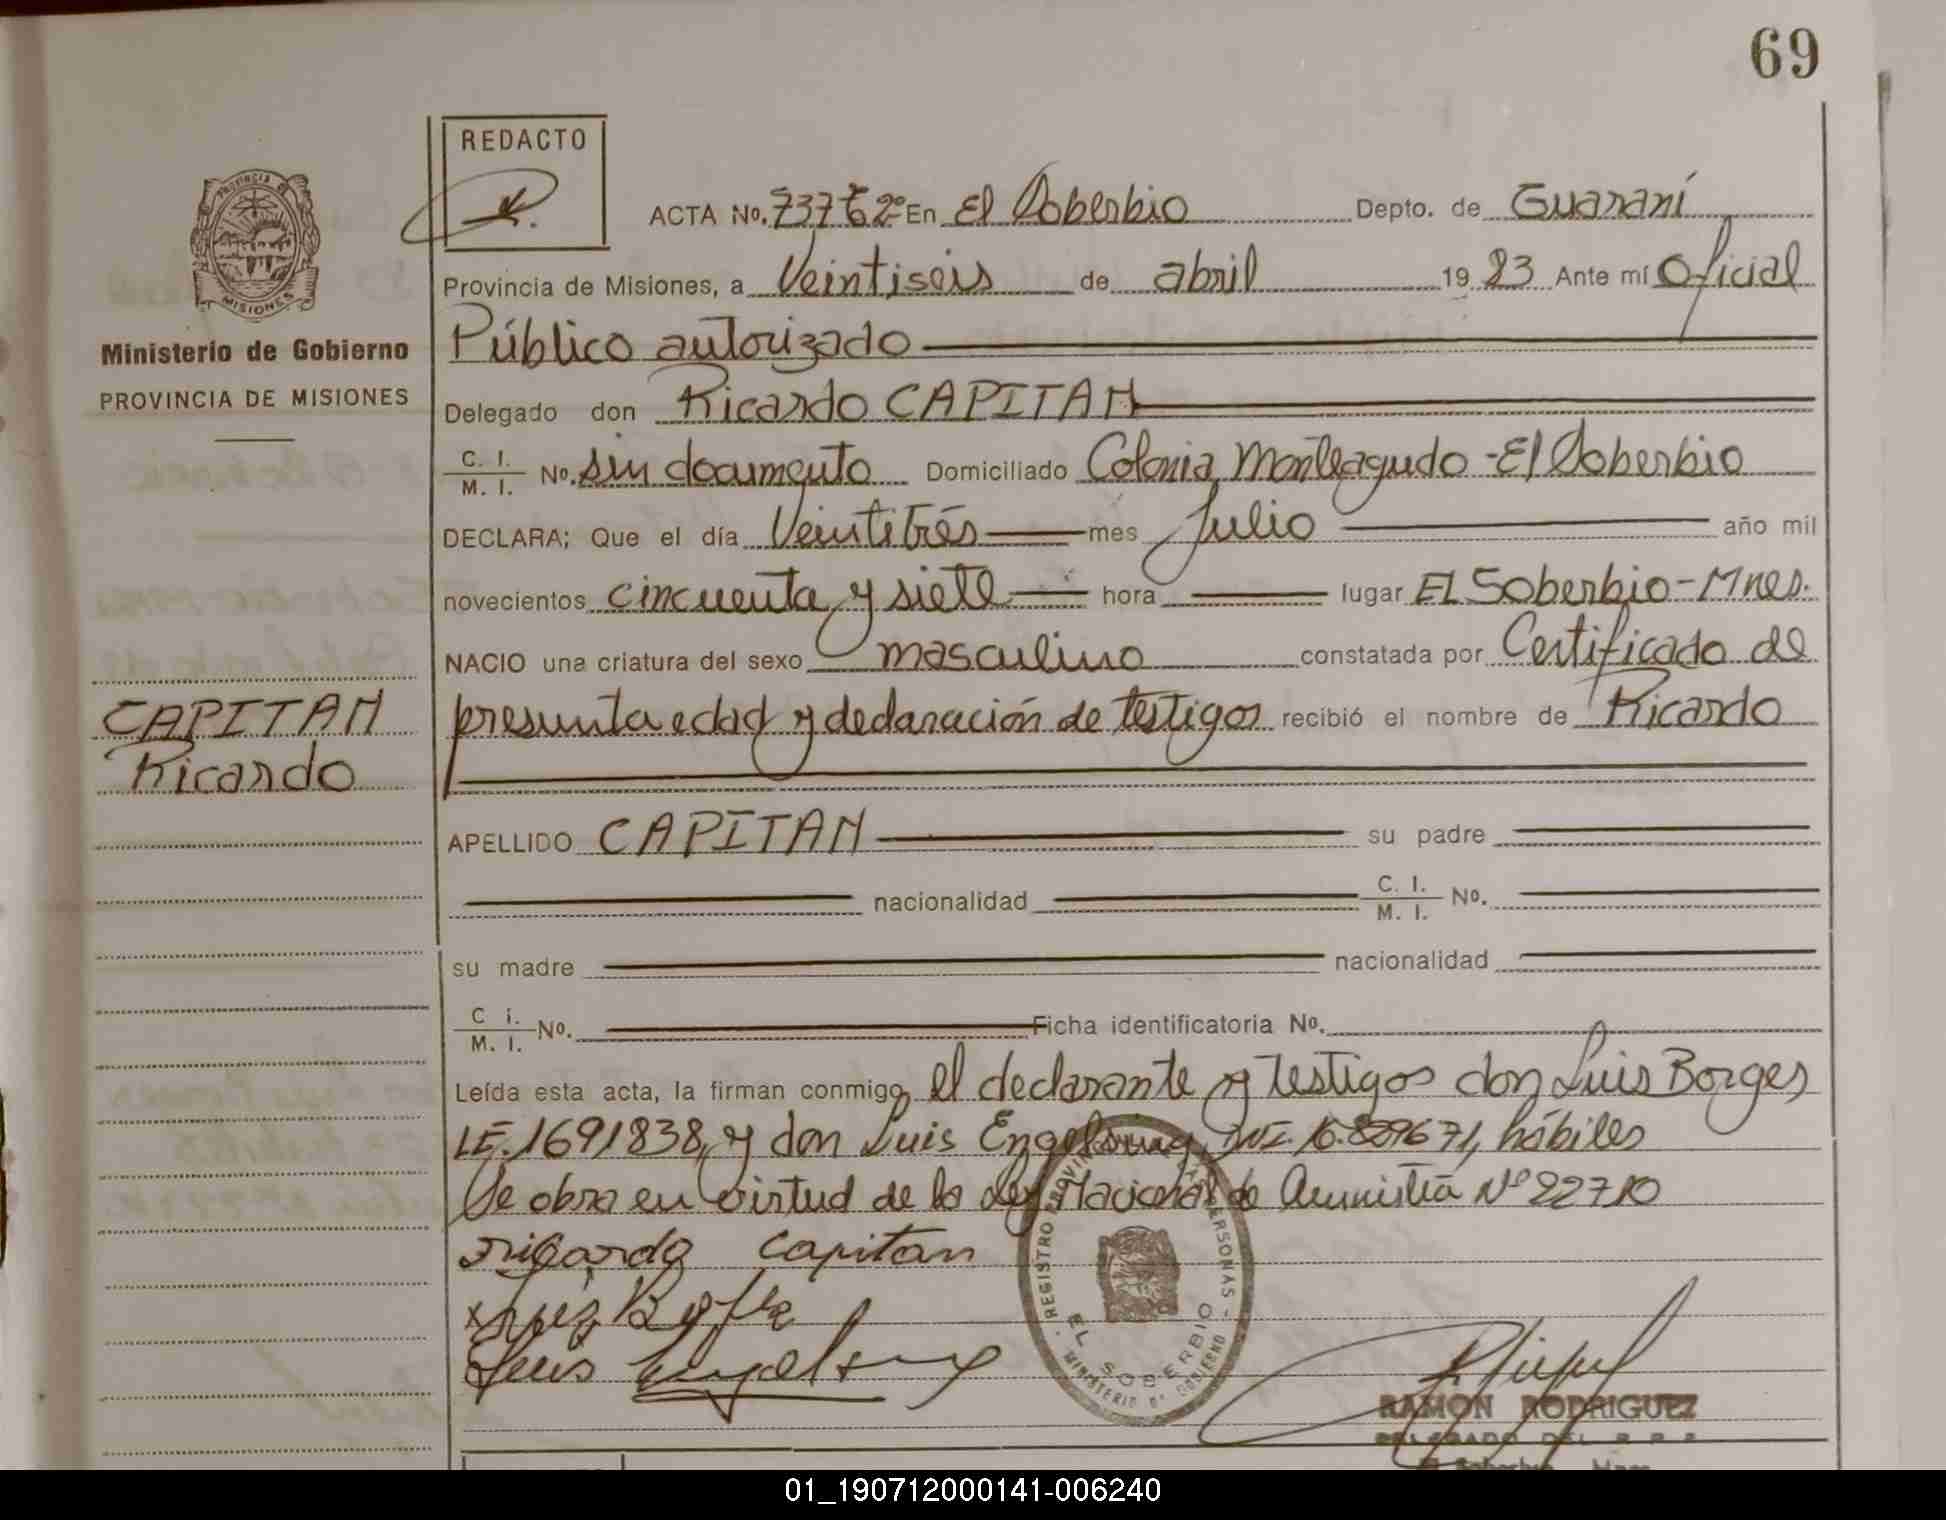 69
REDACTO
PROVINCIA DE
MISIONES
ACTA No. 737 Tº 2º En El Soberbio Depto. de Guaraní
Provincia de Misiones, a Veintiseis de abril 1983 Ante mí Oficial
Ministerio de Gobierno
PROVINCIA DE MISIONES
Público autorizado
Delegado don Ricardo CAPITAN
C. I.
M. I. No. sin documento Domiciliado Colonia Monteagudo - El Soberbio
DECLARA; Que el día Veintitrés mes Julio año mil
novecientos cincuenta y siete hora lugar EL Soberbio - Mnes.
NACIO una criatura del sexo masculino constatada por Certificado de
CAPITAN
Ricardo
presunta edad y declaración de testigos recibió el nombre de Ricardo
APELLIDO CAPITAN su padre
nacionalidad C. I.
M. I. No.
su madre nacionalidad
C i.
M. I. No. Ficha identificatoria No.
Leída esta acta, la firman conmigo, el declarante y testigos don Luis Borges
LE. 1691838, y don Luis DNI. hábiles
Se obra en virtud de la Ley Nacional de Amnistía Nº 22710
ricardo capitan
Luis
REGISTRO PROVINCIAL PERSONAS
EL SOBERBIO
MINISTERIO Dº GOBIERNO
RAMON RODRIGUEZ
DELEGADO DEL R. P. P.
El Soberbio Mnes.
01_190712000141-006240